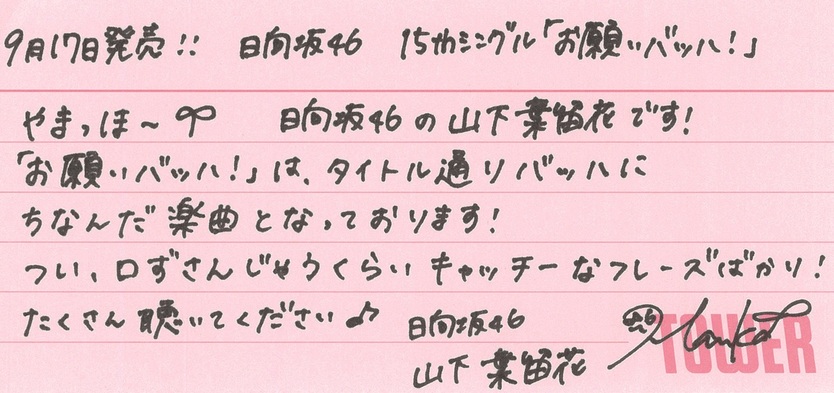 9月17日発売!! 日向坂46 15thシングル「お願いバッハ!」
やまっほ~ 日向坂46の山下葉留花です!
「お願いバッハ!」は、タイトル通りバッハに
ちなんだ楽曲となっております!
つい、口ずさんじゃうくらいキャッチーなフレーズばかり!
たくさん聴いてください♪ 日向坂46
山下葉留花
TOWER